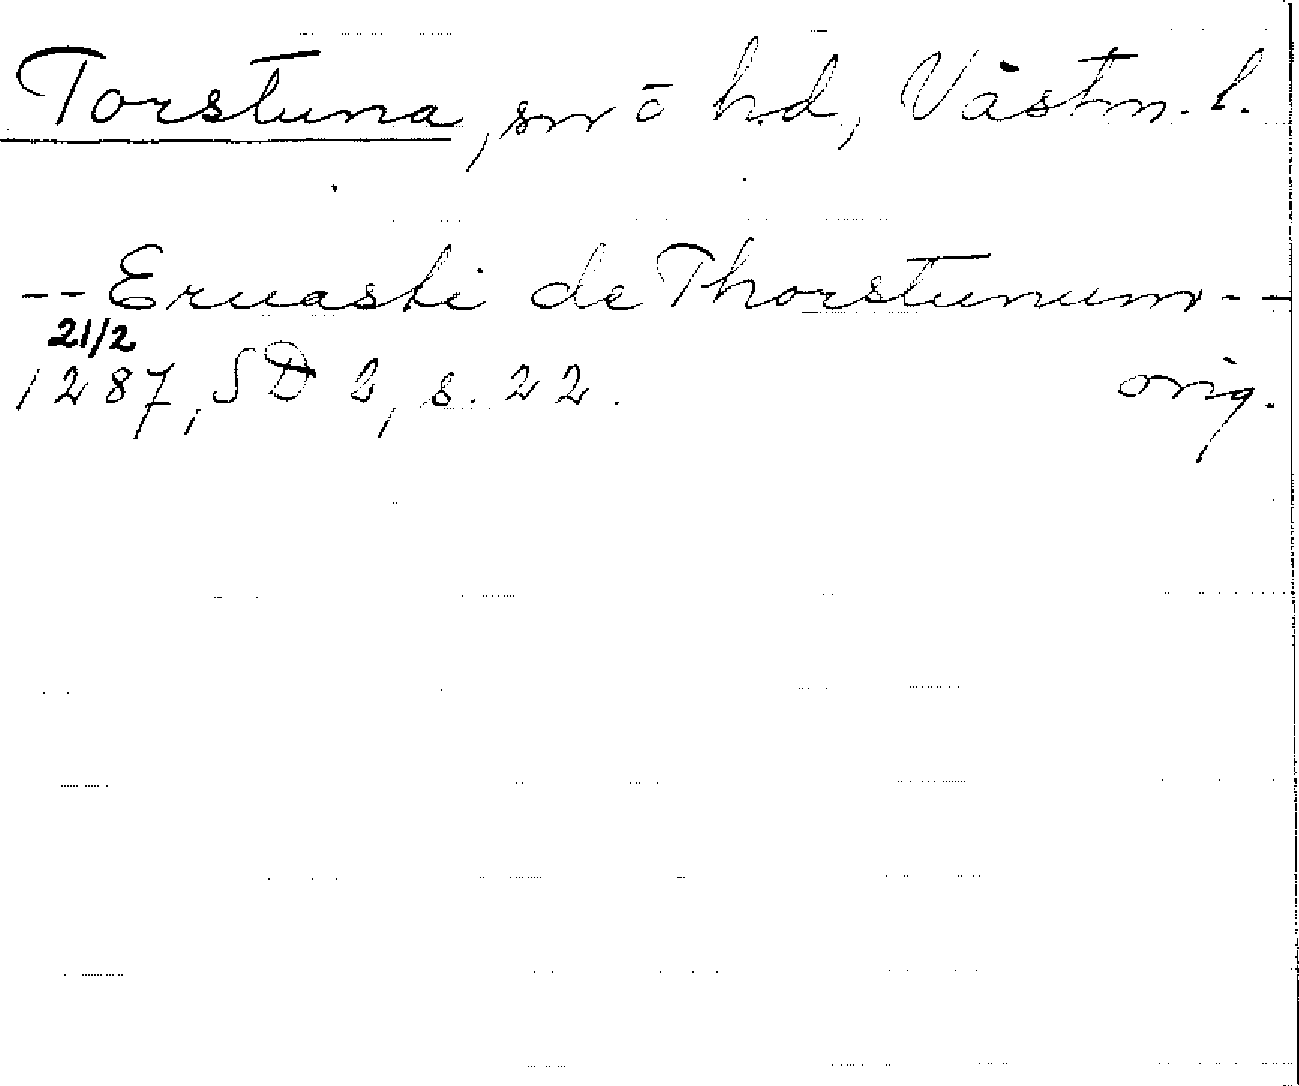 Torstuna, sn ō hd, Västm. l.
-- Eruasti de Thorstunum --
21/2
1287, SD 2, s. 22. orig.